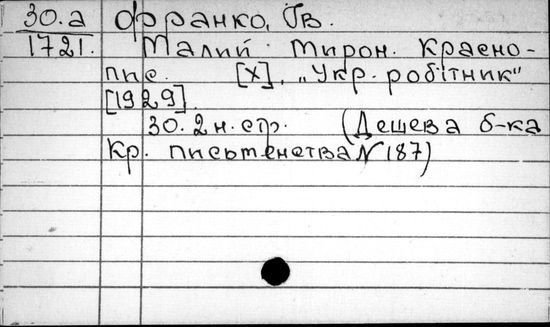 30.а Франко, Ів.
1721. Малий Мирон. Красно-
пис. [Х], „Укр. робітник"
[1929].
30. 2 н. стр. (Дешева б-ка
Кр. письменства N 187)